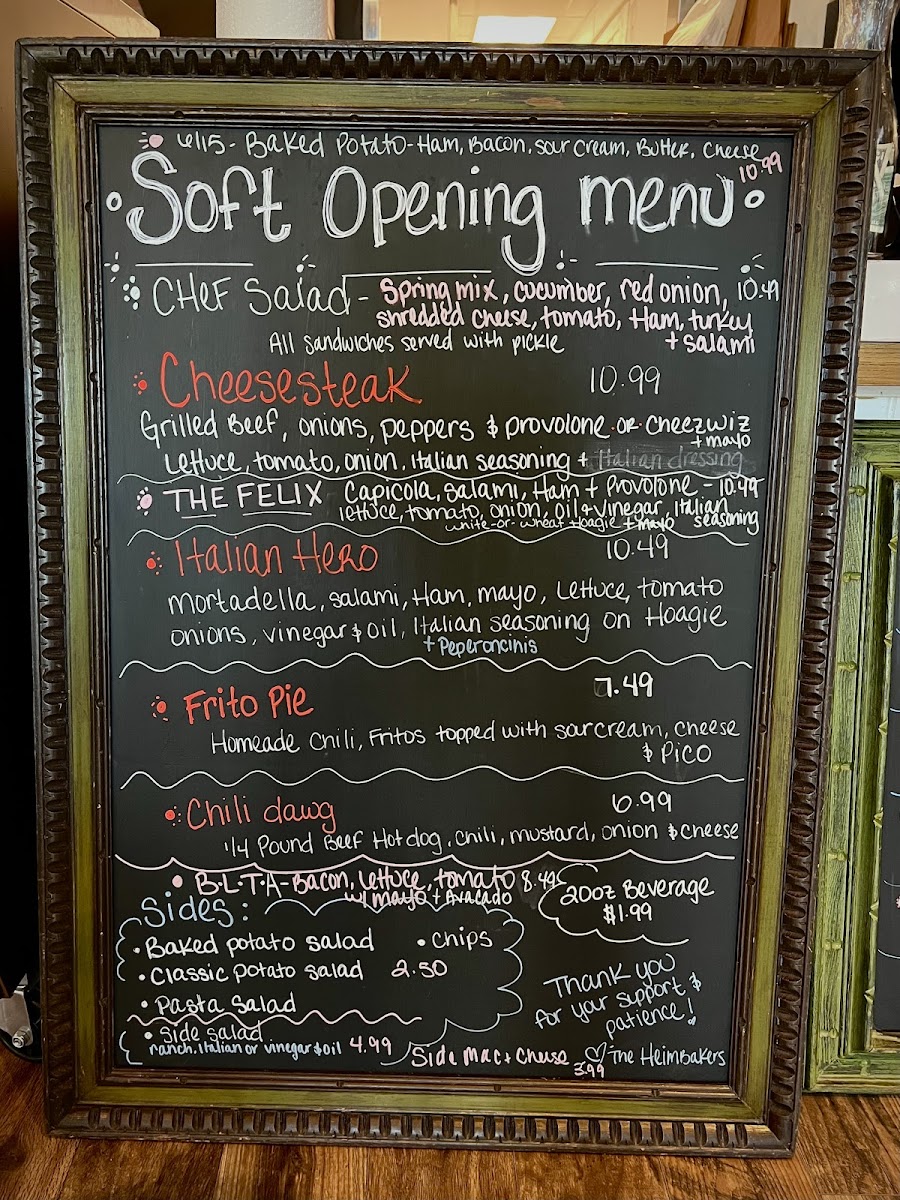 6/15 - Baked Potato - Ham, Bacon, sour cream, Butter, cheese
10.99
Soft Opening menu
CHEF Salad - Spring mix, cucumber, red onion, 10.49
shredded cheese, tomato, Ham, turkey
+ salami
All sandwiches served with pickle
Cheesesteak 10.99
Grilled Beef, onions, peppers & provolone or cheezwiz
+ mayo
Lettuce, tomato, onion, Italian seasoning + Italian dressing
THE FELIX Capicola, salami, Ham + Provolone - 10.49
lettuce, tomato, onion, oil + vinegar, Italian
seasoning
white -or- wheat Hoagie + mayo
Italian Hero 10.49
mortadella, salami, Ham, mayo, Lettuce, tomato
onions, vinegar & oil, Italian seasoning on Hoagie
+ Peperoncinis
Frito Pie 7.49
Homeade Chili, Fritos topped with sour cream, cheese
& Pico
Chili dawg 6.99
1/4 Pound Beef Hotdog, chili, mustard, onion & cheese
B-L-T-A - Bacon, Lettuce, tomato 8.49
w/ mayo + Avacado
20oz Beverage
$1.99
Sides:
• Baked potato salad • Chips
• Classic potato salad 2.50
• Pasta Salad
• Side salad
ranch, Italian or vinegar & oil 4.99
Side Mac + Cheese
3.99
Thank you
for your support &
patience!
The Heimbakers